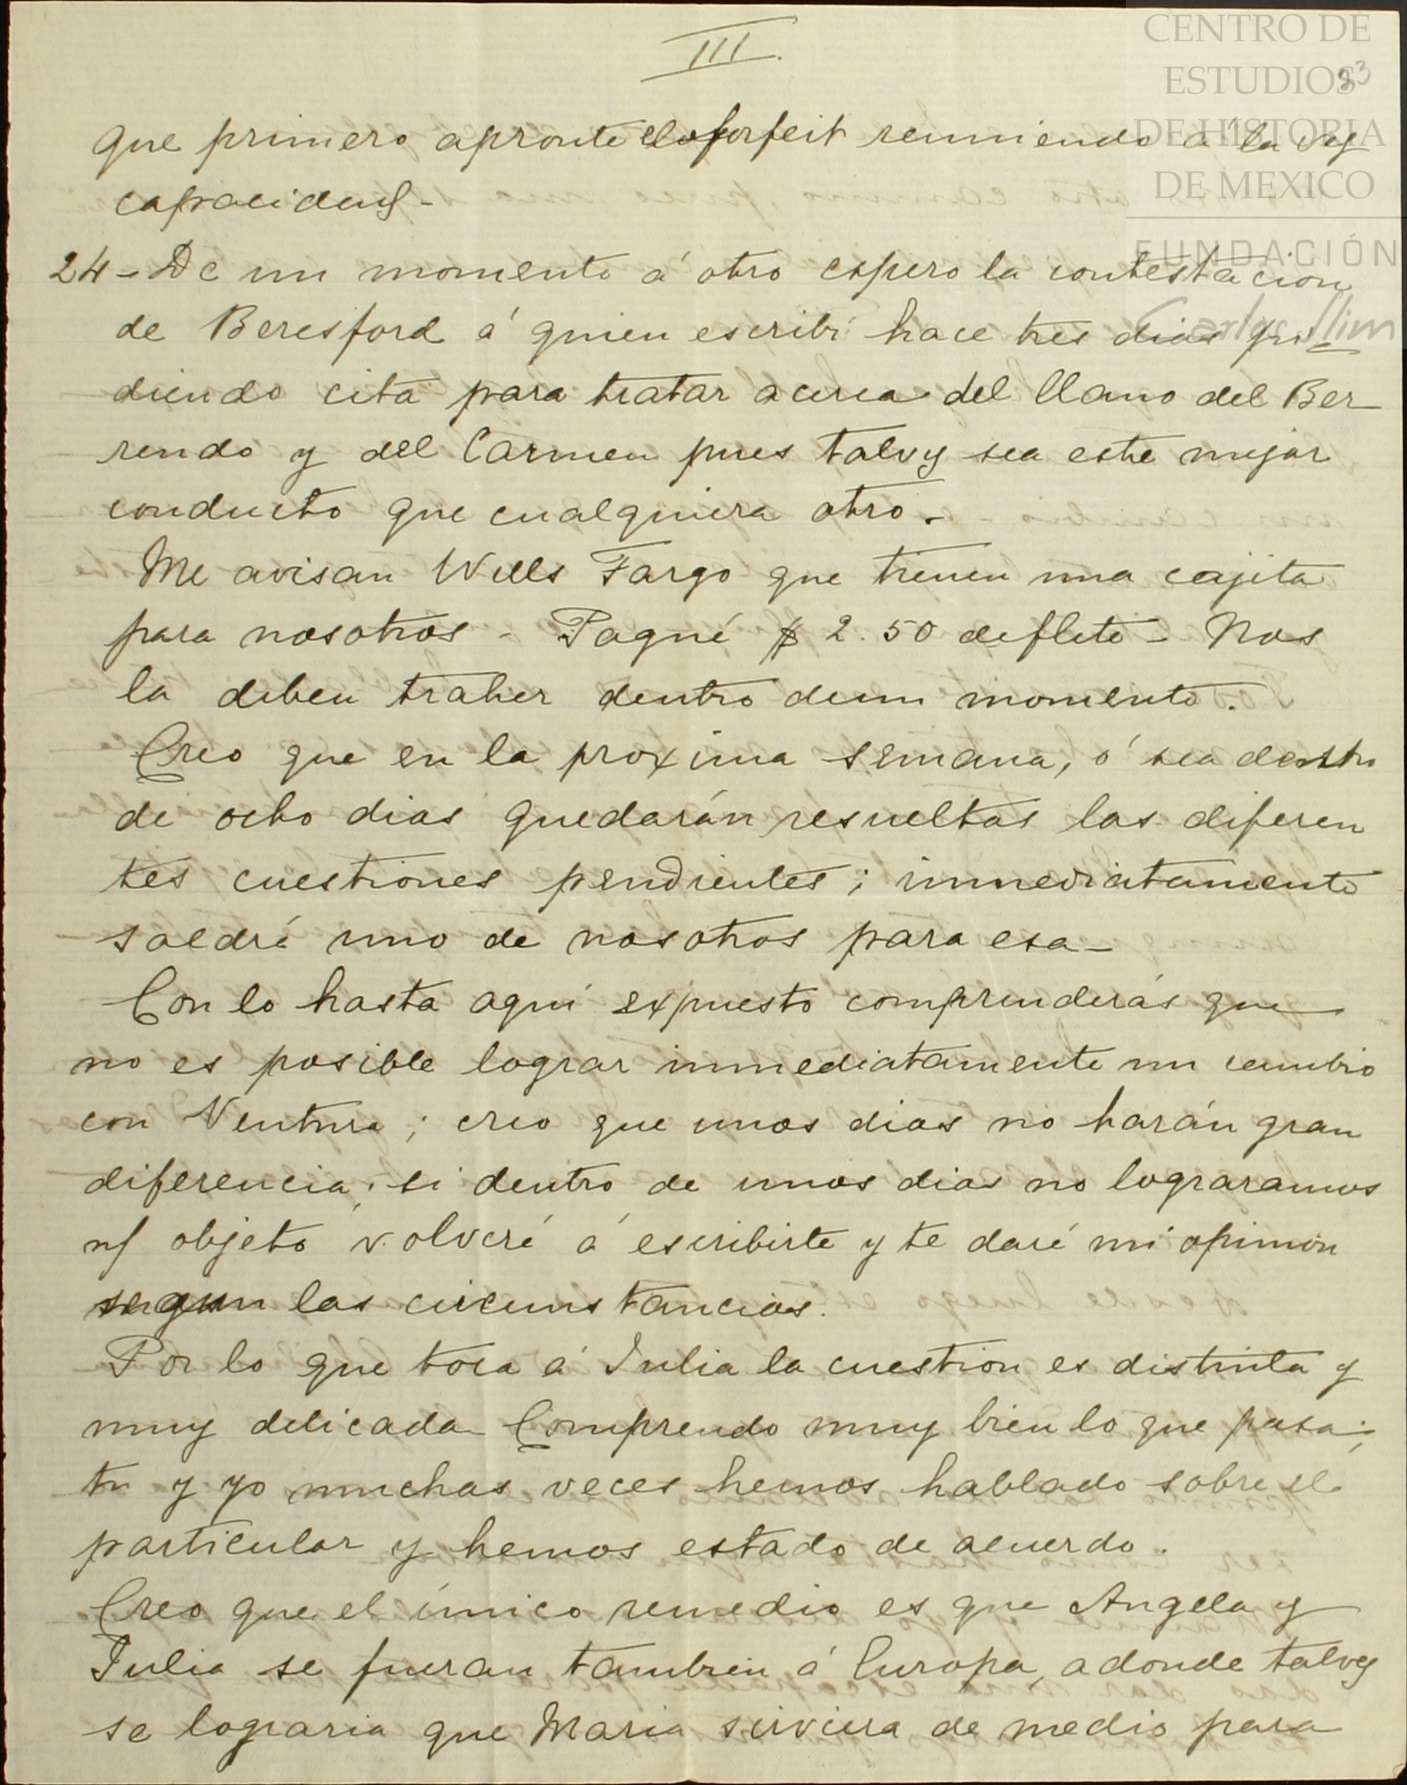 III.
CENTRO DE
ESTUDIOS
DE HISTORIA
DE MEXICO
FUNDACIÓN
Carlos Slim
23
que primero apronte el forfeit reuniendo á la vez
24 - De un momento á otro espero la contestacion
de Beresford á quien escribí hace tres dias pi-
diendo cita para tratar acerca del llano del Ber-
rendo y del Carmen pues talvez sea este mejor
conducto que cualquiera otro.
Me avisan Wells Fargo que tienen una cajita
para nosotros - Pagué $ 2.50 de flete - Nos
la deben traher dentro de un momento.
Creo que en la proxima semana, ó sea dentro
de ocho dias quedarán resueltas las diferen
tes cuestiones pendientes; inmediatamente
saldrá uno de nosotros para esa -
Con lo hasta aquí expuesto comprenderás que
no es posible lograr inmediatamente un cambio
con Ventura; creo que unos dias no harán gran
diferencia; si dentro de unos dias no lograramos
n/ objeto volveré á escribirte y te daré mi opinion
segun las circunstancias.
Por lo que toca á Julia la cuestion es distinta y
muy delicada Comprendo muy bien lo que pasa;
tu y yo muchas veces hemos hablado sobre el
particular y hemos estado de acuerdo.
Creo que el único remedio es que Angela y
Julia se fueran tambien á Europa, adonde talvez
se lograria que Maria sirviera de medio para